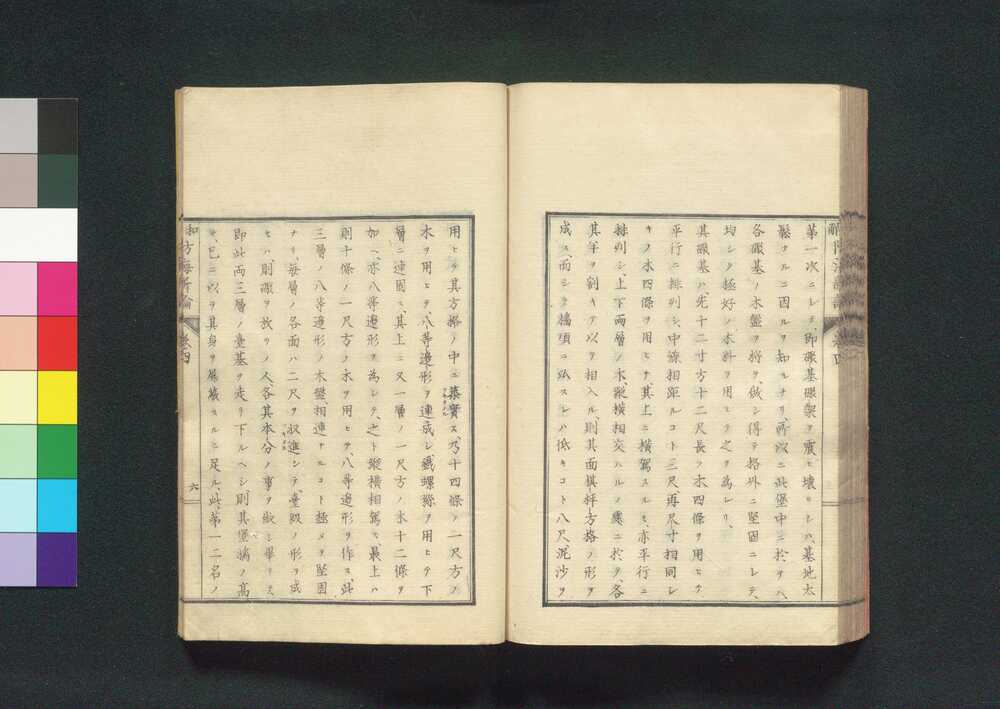 第一次ニシテ、即礮基礮架ヲ震ヒ壊ヒシハ、基地太
鬆ヲルニ因ルヲ知ルナリ、所以ニ此堡中ニ於テハ、
各礮基ノ木盤ヲ将テ、做シ得テ格外ニ堅固ニシテ、
均シク極好ノ木料ヲ用ヒテ之ヲ為レリ、
其礮基ハ先十二寸方十二尺長ノ木四條ヲ用ヒテ
平行ニ排列シ、中線相距ルコト三尺再尺寸相同シ
キノ木四條ヲ用ヒテ、其上ニ横駕スルヒ、亦平行ニ
排列シ、上下両層ノ木、縦横相交ハルノ處ニ於テ、各
其半ヲ剖キ以テ相入ル、則其面棋枰方格ノ形ヲ
成ス、而シテ墻頂ニ比スレハ低キコト八尺泥沙ヲ
用ヒテ其方格ノ中ニ築實ス、乃十四條ノ一尺方ノ
木ヲ用ヒテ、八等邊形ヲ連成シ、鐵螺絲ヲ用ヒテ下
層ニ連固シ、其上ニ又一層ノ一尺方ノ木十二條ヲ
如ヘ、亦八等邊形ヲ為シテ、之ト縦横相駕シ、最上ハ
則十條ノ一尺方ノ木ヲ用ヒテ、八等邊形ヲ作ス、此
三層ノ八等邊形ノ木盤、相連ナルコト極メテ堅固
ナリ、毎層ノ各面ハ二尺ヲ収進シテ、臺級ノ形ヲ成
セハ、則礮ヲ放ツノ人、各其本分ノ事ヲ做シ畢リテ、
即此両三層ノ臺基ヲ走リ下ルヘシ則其堡墻ノ高、
已ニ以テ其身ヲ屏蔽スルニ足ル、此、第一二名ノ
防海新論
巻四
六